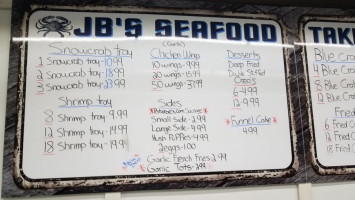 JB'S SEAFOOD
Snowcrab tray
1 Snowcrab tray-10.99
2 Snowcrab tray-18.99
3 Snowcrab tray-23.99
Shrimp tray
8 Shrimp tray-9.99
12 Shrimp tray-14.99
18 Shrimp tray-19.99
(Garlic)
Chicken Wings
10 wings-9.99
20 wings-15.99
50 wings-37.99
Sides
Small Side-2.99
Large Side-4.99
Hush Puppies-4.99
2 eggs-1.00
Garlic French Fries-2.99
Garlic Tots-2.99
Desserts
Deep Fried
Oreos
6-4.99
12-9.99
Funnel Cake
4.99
TAK
Blue C
3 Blue Cr
4 Blue Cra
6 Blue Cr
8 Blue Cr
12 Blue Cr
Fried
6
8
12 Fried
18 Fried